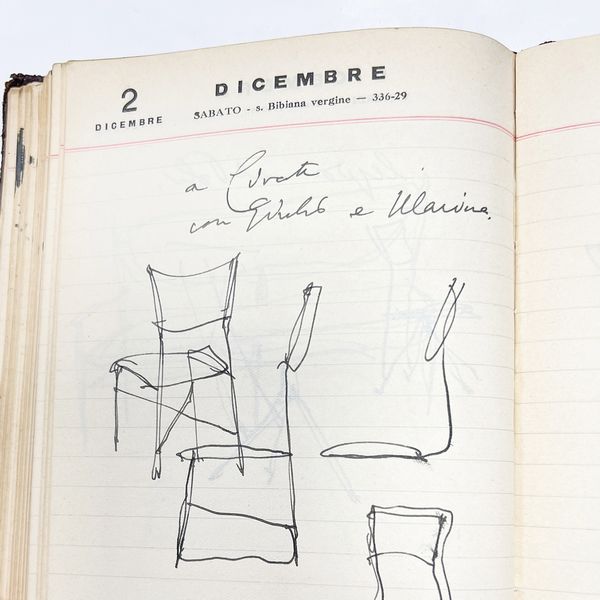 2
DICEMBRE
DICEMBRE
SABATO - s. Bibiana vergine — 336-29
a
con Giulio e Marina.